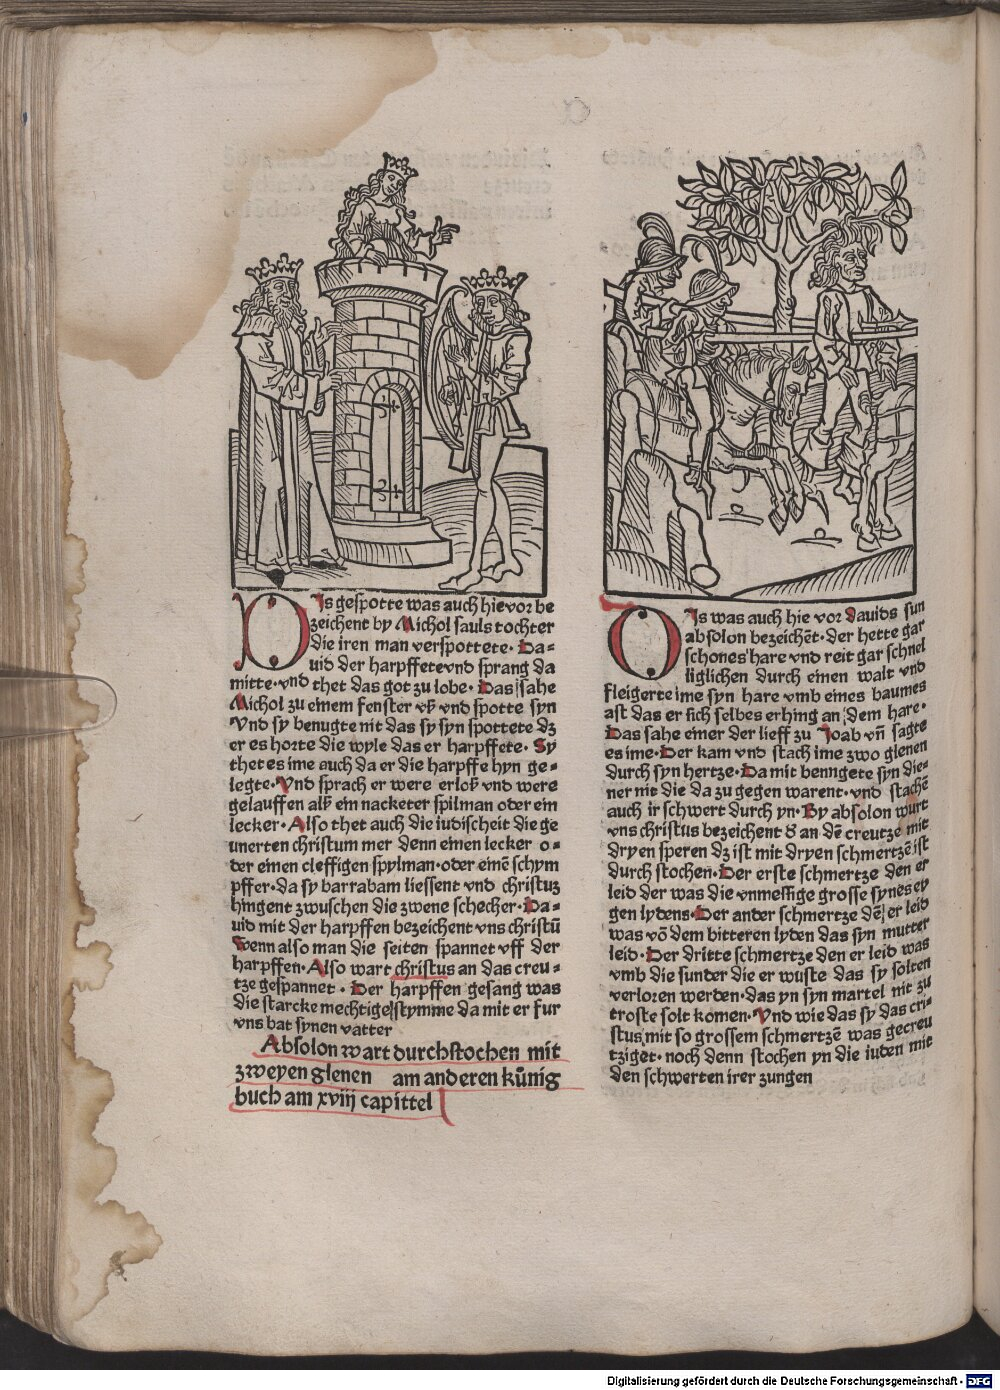 DIs gespotte was auch hievor be
zeichent by Michol sauls tochter
die iren man verspottete· Da-
uid der harpffete vnd sprang da
mitte· vnd thet das got zu lobe· Das sahe
Michol zu einem fenster vß vnd spotte syn
Vnd sy benugte nit das sy syn spottete dz
er es horte die wyle das er harpffete· Sy
thet es ime auch da er die harpffe hyn ge-
legte· Vnd sprach er were erloß vnd were
gelauffen alß ein nacketer spilman oder ein
lecker· Also thet auch die iudischeit die ge
unerten christum mer denn einen lecker o-
der einen cleffigen spylman· oder einē schym
pffer· da sy barrabam liessent vnd christuz
hingent zwuschen die zwene schecher· Da-
uid mit der harpffen bezeichent vns christū
Wenn also man die seiten spannet vff der
harpffen· Also wart christus an das creu-
tze gespannet· Der harpffen gesang was
die starcke mechtige stymme da mit er fur
vns bat synen vatter
Absolon wart durchstochen mit
zweyen glenen am anderen kůnig
buch am xviij capittel
DIs was auch hie vor Dauids sun
absolon bezeichēt· der hette gar
schones hare vnd reit gar schnel
liglichen durch einen walt vnd
fleigerte ime syn hare vmb eines baumes
ast das er sich selbes erhing an dem hare·
Das sahe einer der lieff zu Joab vn̄ sagte
es ime· Der kam vnd stach ime zwo glenen
durch syn hertze· Da mit benugete syn die-
ner nit die da zu gegen warent· vnd stachē
auch ir schwert durch yn· By absolon wurt
vns christus bezeichent d̕ an dē creutze mit
dryen speren dz ist mit dryen schmertzē ist
durch stochen· Der erste schmertze den er
leid der was die vnmessige grosse synes ey
gen lydens· Der ander schmertze dē er leid
was vō dem bitteren lyden das syn mutter
leid· Der dritte schmertze den er leid was
vmb die sunder die er wuste das sy solten
verloren werden· das yn syn martel nit zu
troste solt komen· Vnd wie das sy das cri-
stus mit so grossem schmertzē was gecreu
tziget· noch denn stochen yn die iuden mit
den schwerten irer zungen
Digitalisierung gefördert durch die Deutsche Forschungsgemeinschaft - DFG